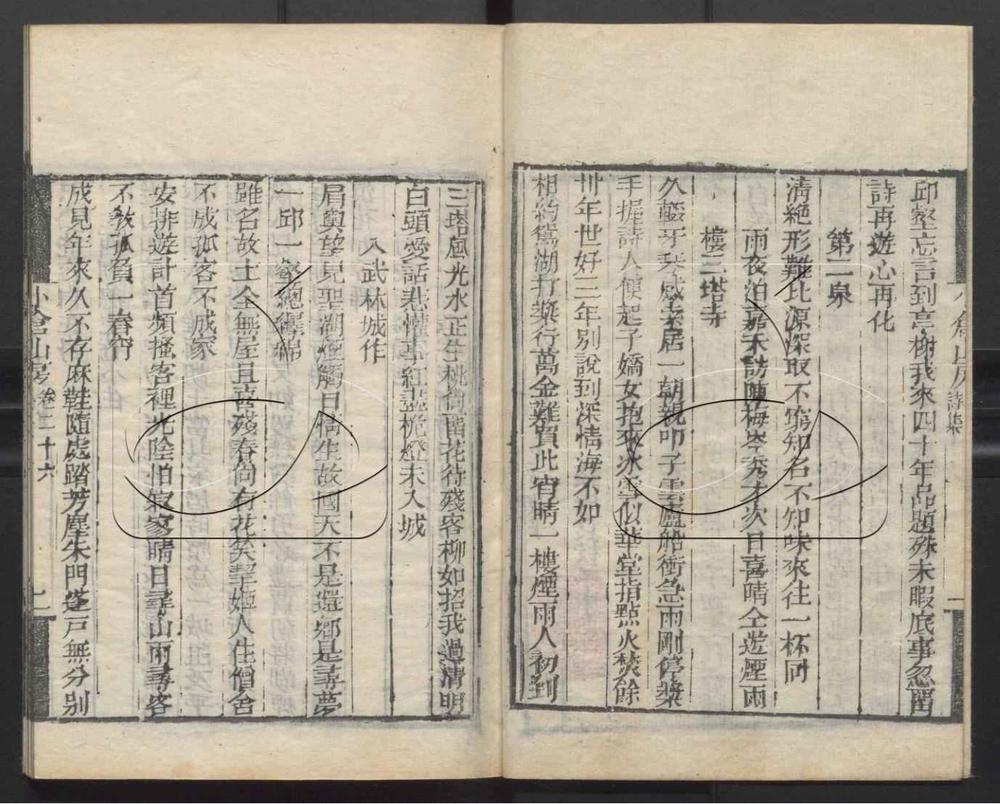 邱壑忘言到亭榭我來四十年品題殊未暇底事忽留
詩再遊心再化
第二泉
清絶形難比源深取不窮知名不知味來往一杯同
雨夜泊嘉禾訪陳梅岑秀才次日喜晴仝遊煙雨
樓三塔寺
久輟牙琴感索居一朝親叩子雲廬船衝急雨剛停槳
手握詩人便起予嬌女抱來冰雪似華堂指點火焚餘
卅年世好三年別說到深情海不如
相約鴛湖打槳行萬金難買此宵晴一樓煙雨人初到
三塔風光水正生桃尚留花待殘客柳如招我過清明
白頭愛話悲懽事紅盡桅燈未入城
入武林城作
肩輿望見聖湖煙觸目橋生故國天不是還鄉是尋夢
一邱一壑總纏綿
雖名故土全無屋且喜殘春尚有花矣挈姬人住僧舍
不成孤客不成家
安排遊計首頻搔客裡光陰怕寂寥晴日尋山雨尋客
不教孤負一春宵
成見年來久不存麻鞋隨處踏芳塵朱門蓬戶無分別
小倉山房
卷二十六
七
小倉山房詩集